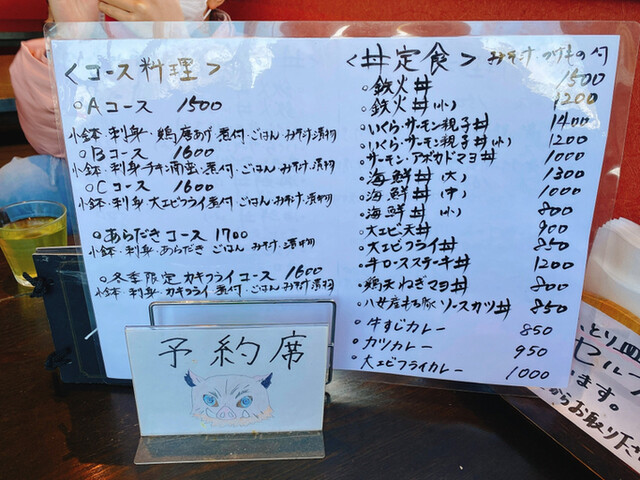 ＜コース料理＞
○Aコース 1500
小鉢・刺身・鶏唐あげ・煮付・ごはん・みそ汁・漬物
○Bコース 1600
小鉢・刺身・チキン南蛮・煮付・ごはん・みそ汁・漬物
○Cコース 1600
小鉢・刺身・大エビフライ・煮付・ごはん・みそ汁・漬物
○あらだきコース 1700
小鉢・刺身・あらだき ごはん みそ汁・漬物
○冬季限定 カキフライコース 1600
小鉢・刺身・カキフライ 煮付・ごはん・みそ汁・漬物
＜丼定食＞ みそ汁 つけもの付
○鉄火丼 1500
○鉄火丼(小) 1200
○いくら・サーモン親子丼 1400
○いくら・サーモン親子丼(小) 1200
○サーモン・アボカドマヨ丼 1000
○海鮮丼(大) 1300
○海鮮丼(中) 1000
○海鮮丼(小) 800
○大エビ天丼 900
○大エビフライ丼 850
○牛ロースステーキ丼 1200
○鶏天ねぎマヨ丼 800
○八女産もち豚ソースカツ丼 850
○牛すじカレー 850
○カツカレー 950
○大エビフライカレー 1000
予約席
とり皿
セルフ
ます。
からお取り下さ